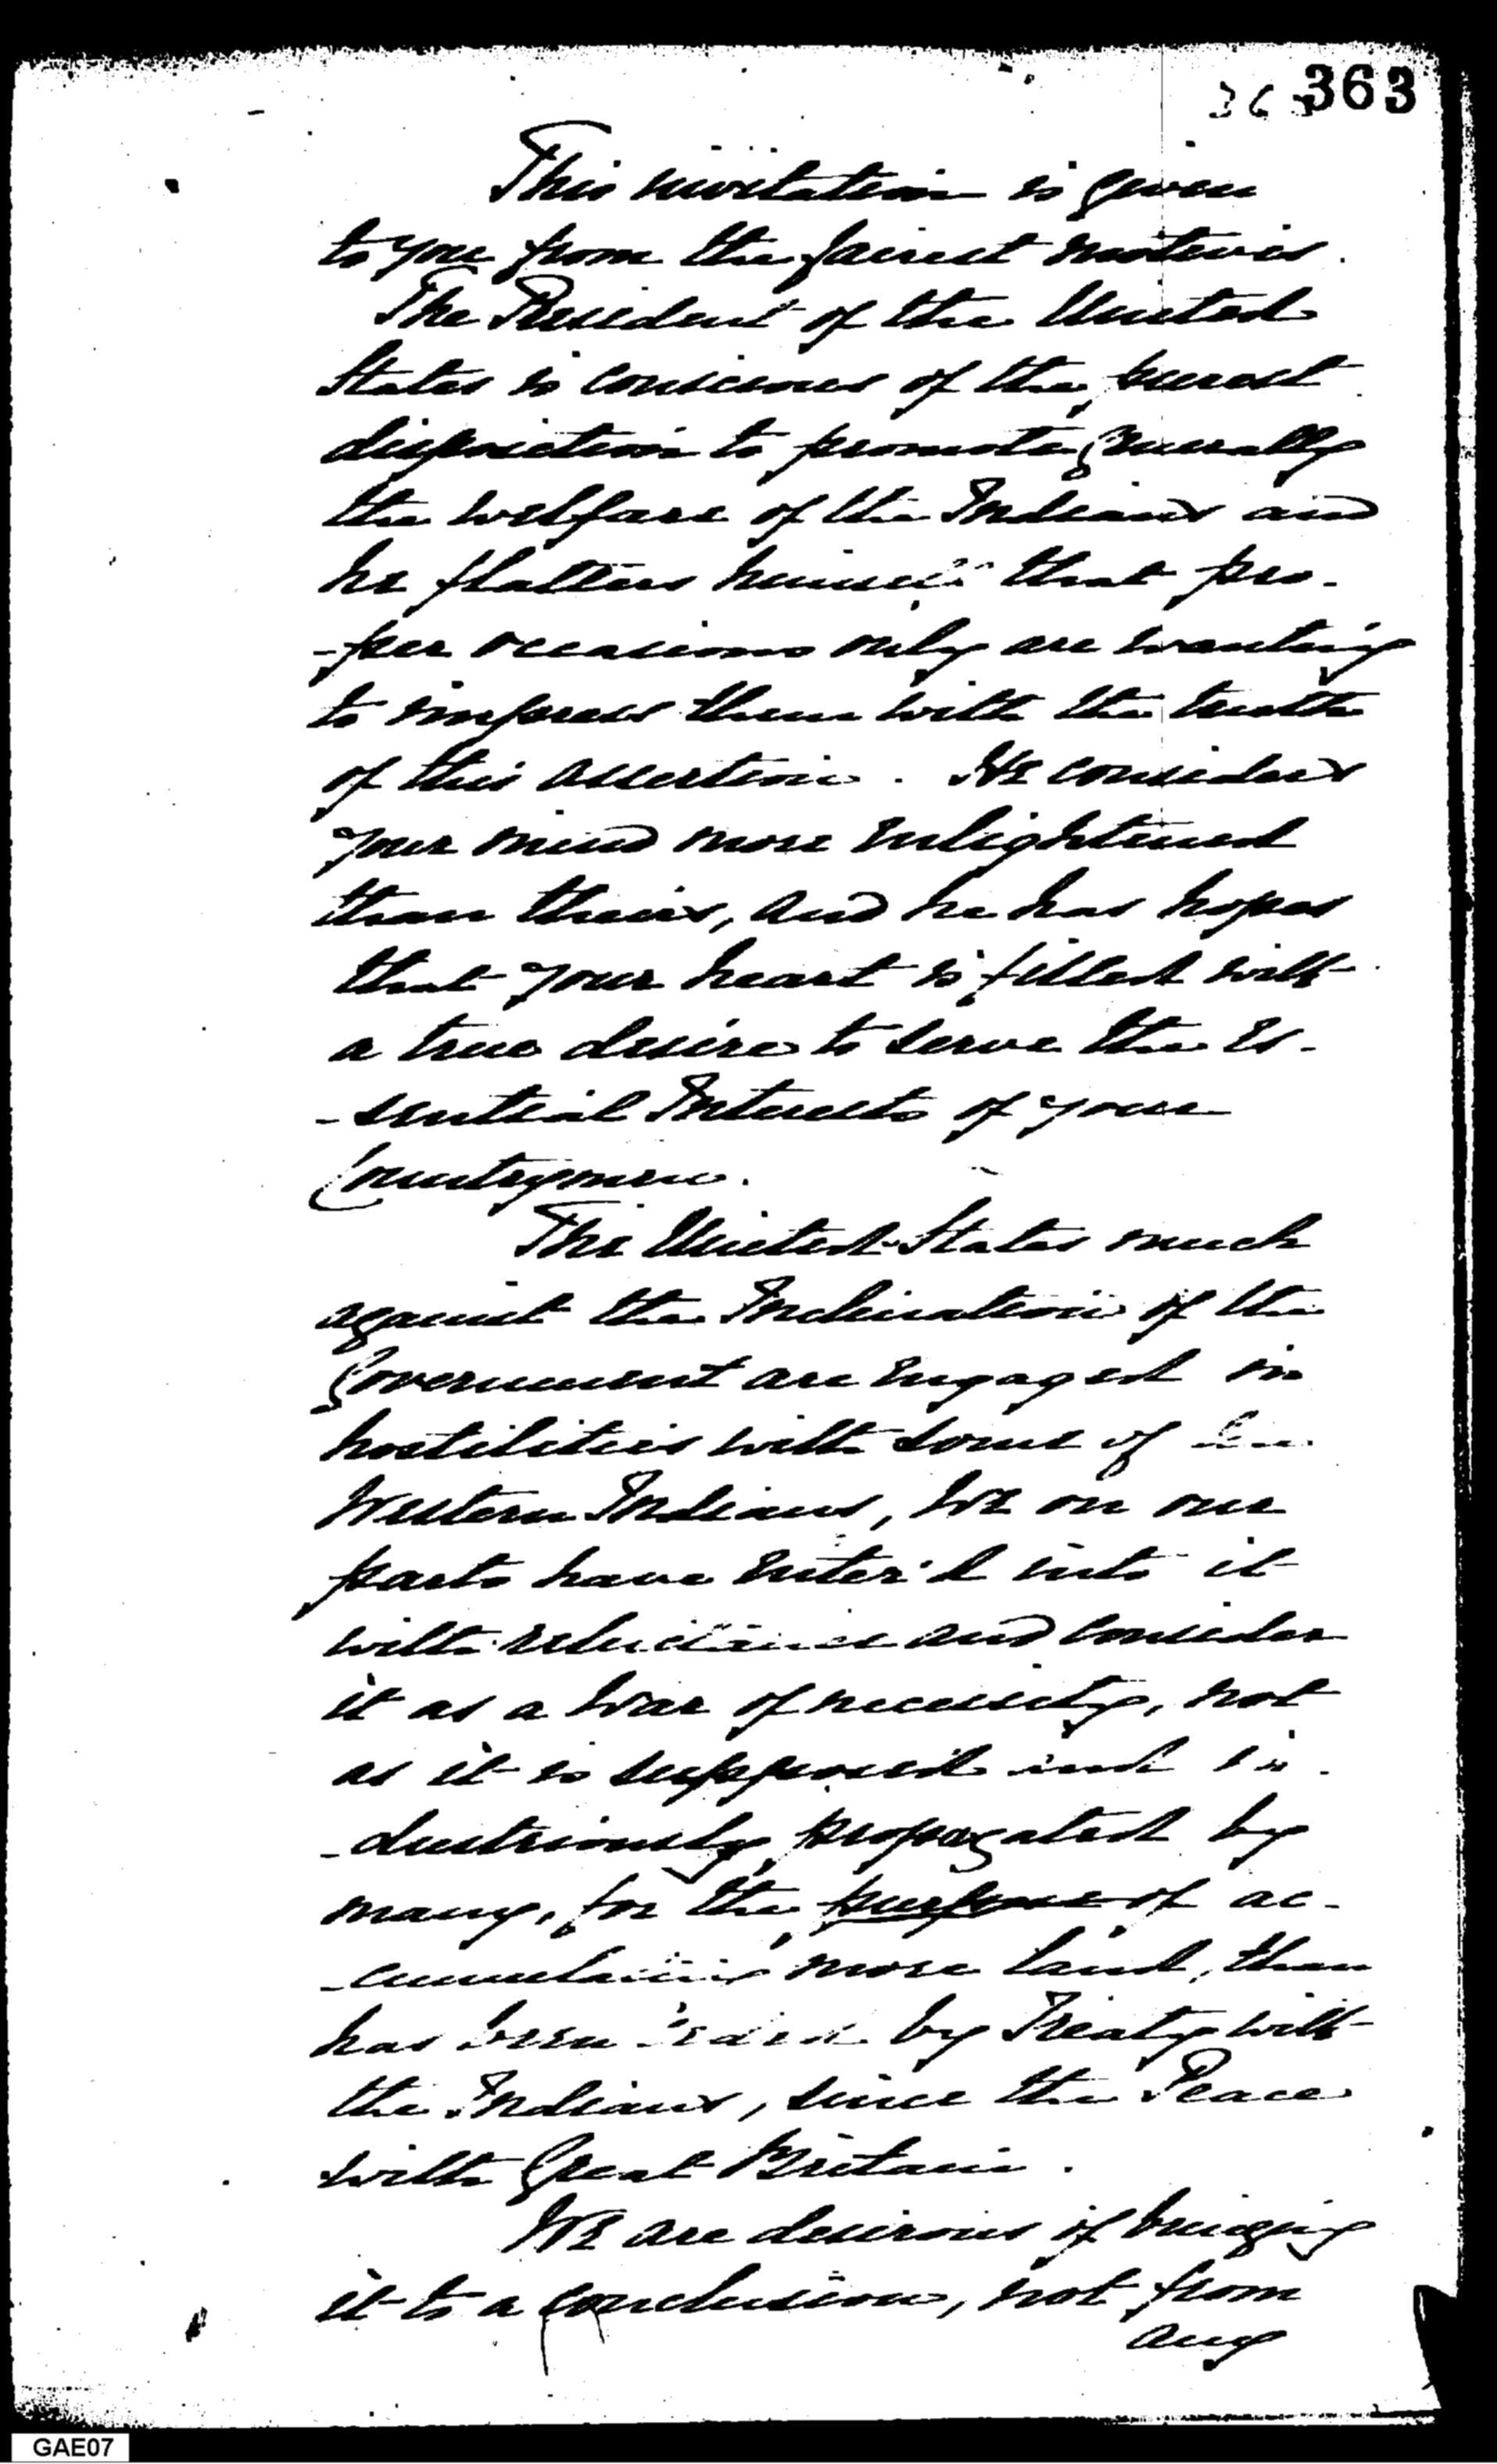 363
This invitation is given
to you from the fairest motives.
The President of the United
States is conscious of the purest
disposition to promote generally
the welfare of the Indians and
he flatters himself that pro-
-per occasions only are wanting
to impress them with the truth
of this assertion. He considers
your mind more enlightened
than theirs, and he has hopes
that your heart is filled with
a true desire to serve the Es-
-sential Interests of your
Countrymen.
The United States much
against the Inclination of the
Government are engaged in
hostilities with some of the
Western Indians, We on our
parts have enter'd into it
with reluctance and consider
it as a War of necessity, not
as it is supposed and in-
-dustriously propagated by
many, for the purpose of ac-
-cumulating more land, than
has been ceded by Treaty with
the Indians, since the Peace
with Great Britain.
We are desirous of bringing
it to a conclusion, not from
any
GAE07